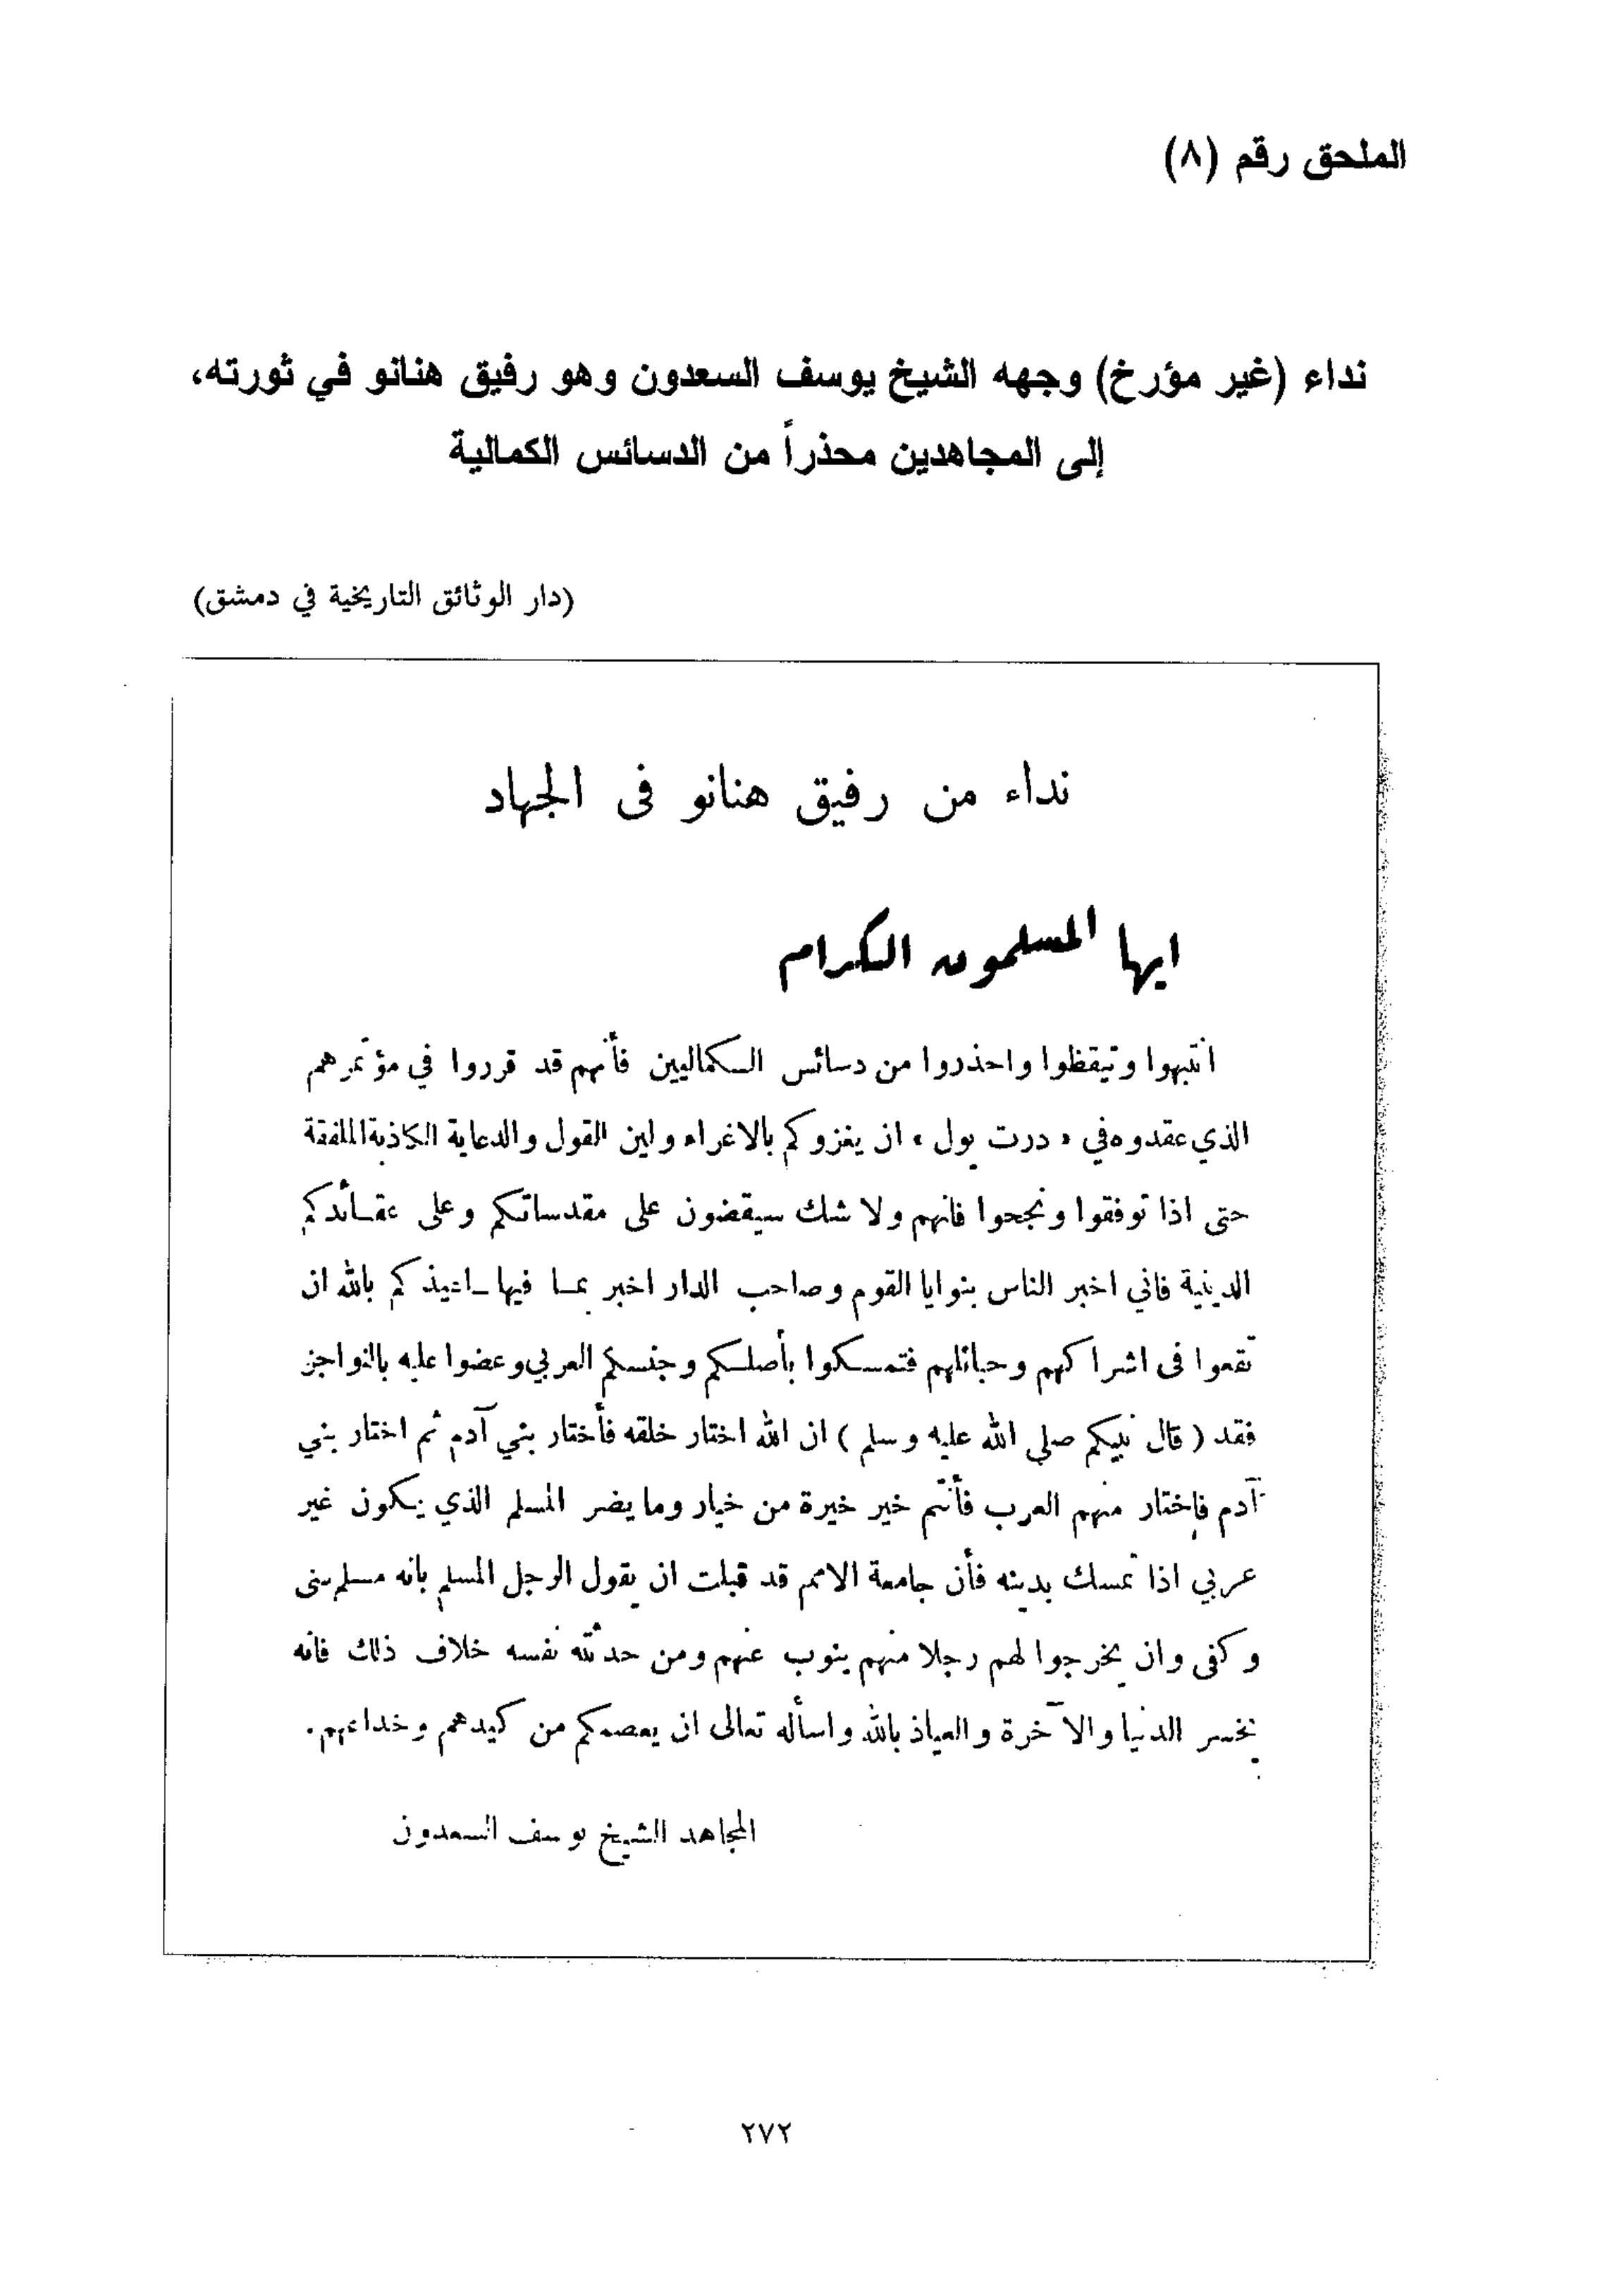 الملحق رقم (٨)
نداء (غير مؤرخ) وجهه الشيخ يوسف السعدون وهو رفيق هنانو في ثورته،
إلى المجاهدين محذراً من الدسائس الكمالية
(دار الوثائق التاريخية في دمشق)
نداء من رفيق هنانو فى الجهاد
ايها المسلمون الكرام
انتبهوا وتيقظوا واحذروا من دسائس الكماليين فأنهم قد قرروا في مؤتمرهم
الذي عقدوه في « درت يول » ان يغزوكم بالاغراء ولين القول والدعاية الكاذبة الملفقة
حتى اذا توفقوا ونجحوا فانهم ولا شك سيقضون على مقدساتكم وعلى عقائدكم
الدينية فاني اخبر الناس بنوايا القوم وصاحب الدار اخبر بما فيها ـ اعيذكم بالله ان
تقعوا فى اشراكهم وحبائلهم فتمسكوا بأصلكم وجنسكم العربي وعضوا عليه بالنواجز
فقد ( قال نبيكم صلى الله عليه وسلم ) ان الله اختار خلقه فأختار بني آدم ثم اختار بني
آدم فإختار منهم العرب فأنتم خير خيرة من خيار وما يضر المسلم الذي يكون غير
عربي اذا تمسك بدينه فأن جامعة الامم قد قبلت ان يقول الرجل المسلم بانه مسلم سنى
وكفى وان يخرجوا لهم رجلا منهم ينوب عنهم ومن حدثته نفسه خلاف ذلك فانه
يخسر الدنيا والآخرة والعياذ بالله واسأله تعالى ان يعصمكم من كيدهم وخداعهم.
المجاهد الشيخ يوسف السعدون
٢٧٢